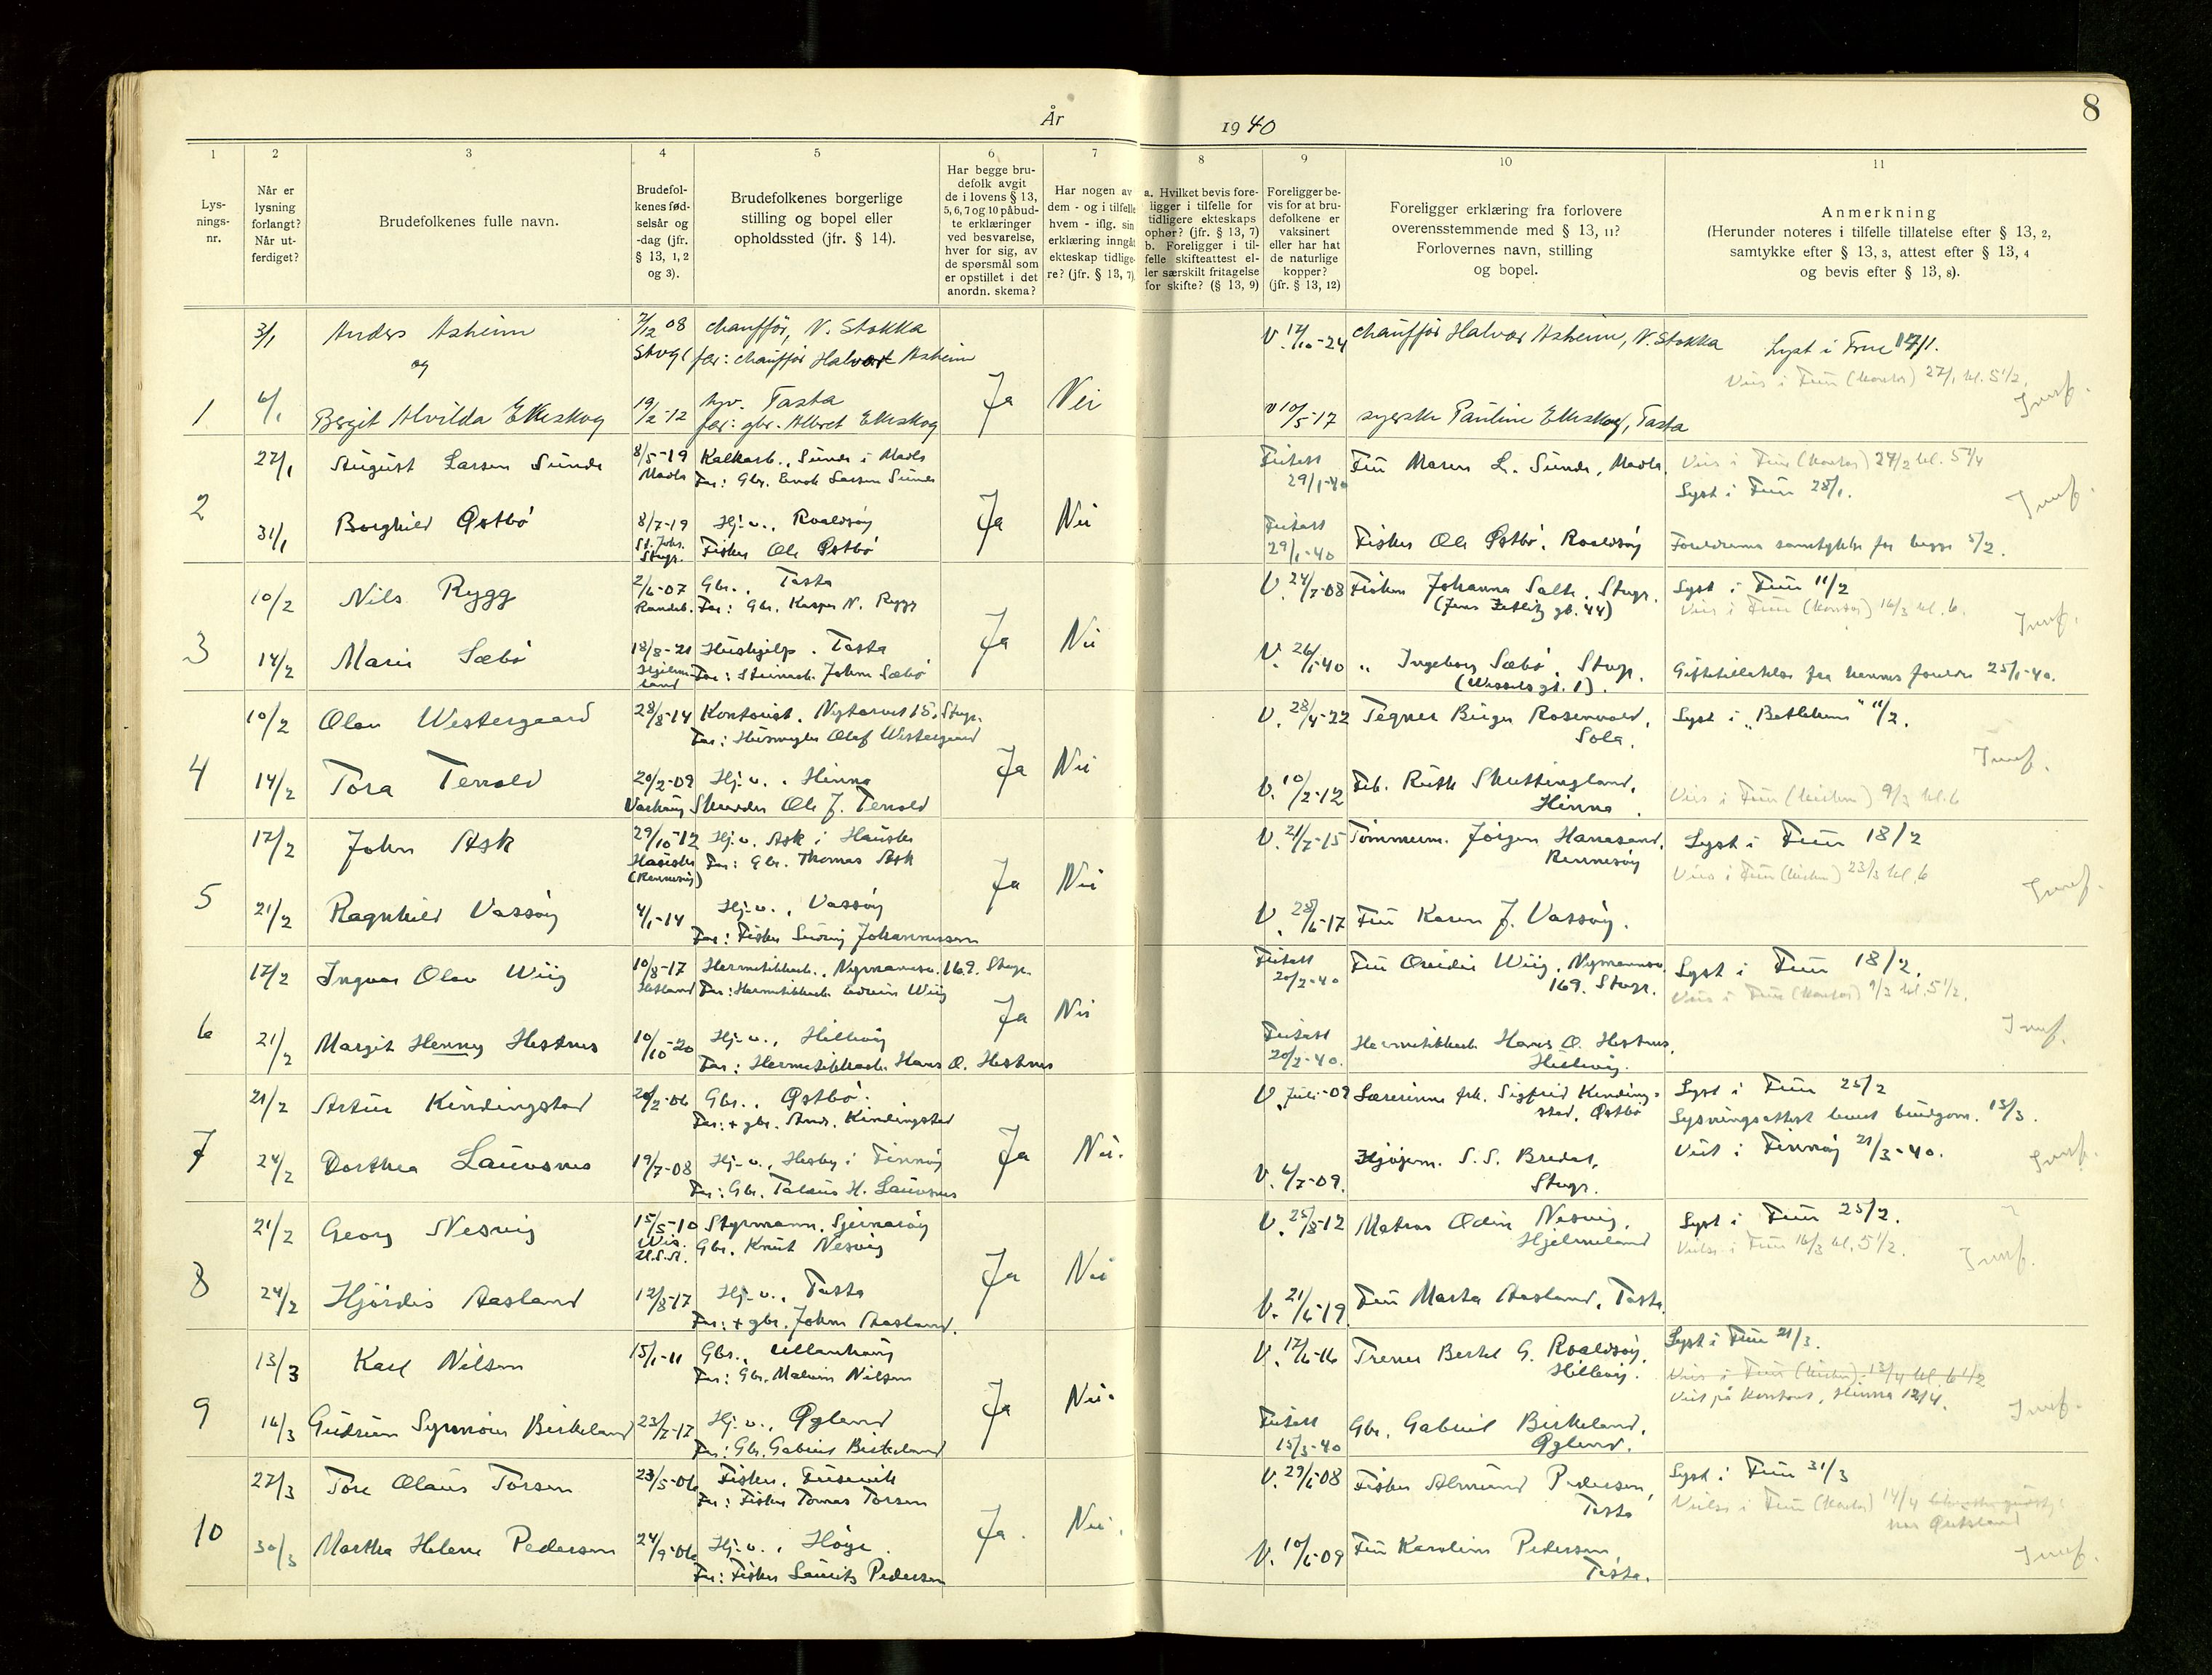 8
År
1940
1
Lys-
nings-
nr.
2
Når er
lysning
forlangt?
Når ut-
ferdiget?
3
Brudefolkenes fulle navn.
4
Brudefol-
kenes fød-
selsår og
-dag (jfr.
§ 13, 1, 2
og 3).
5
Brudefolkenes borgerlige
stilling og bopel eller
opholdssted (jfr. § 14).
6
Har begge bru-
defolk avgit
de i lovens § 13,
5, 6, 7 og 10 påbud-
te erklæringer
ved besvarelse,
hver for sig, av
de spørsmål som
er opstillet i det
anordn. skema?
7
Har nogen av
dem - og i tilfelle
hvem - iflg. sin
erklæring inngåt
ekteskap tidlige-
re? (jfr. § 13, 7).
8
a. Hvilket bevis fore-
ligger i tilfelle for
tidligere ekteskaps
ophør? (jfr. § 13, 7)
b. Foreligger i til-
felle skifteattest el-
ler særskilt fritagelse
for skifte? (§ 13, 9)
9
Foreligger be-
vis for at bru-
defolkene er
vaksinert
eller har hat
de naturlige
kopper?
(jfr. § 13, 12)
10
Foreligger erklæring fra forlovere
overensstemmende med § 13, 11?
Forlovernes navn, stilling
og bopel.
11
Anmerkning
(Herunder noteres i tilfelle tillatelse efter § 13, 2,
samtykke efter § 13, 3, attest efter § 13, 4
og bevis efter § 13, 8).
3/1 Anders Asheim 7/12 08 chauffør, N. Stokka V. 17/10-24 chauffør Halvor Asheim, N. Stokka
Stvgr far: chauffør Halvor Asheim Lyst i Frue 14/1.
og
Vies i Frue (Kontor) 27/1 kl. 5 1/2.
1 6/1 Bergit Alvilda Ekeskog 19/2-12 hjv. Tasta Ja Nei V 10/5-17 syerske Pauline Ekeskog, Tasta
far: gbr. Albret Ekeskog
27/1 August Larsen Sunde 8/5-19 Kalkarb., Sunde i Madla Fru Maren L. Sunde, Madla. Vies i Frue (Kontor) 24/2 kl. 5 1/4
Madla Far: Gbr. Enok Larsen Sunde 29/1-40 Lyst i Frue 28/1.
2 31/1 Borghild Østbø 8/7-19 Hj.v., Roaldsøy Ja Nei
St. Joh. Stvgr. Fisker Ole Østbø 29/1-40 Fisker Ole Østbø, Roaldsøy Foreldrenes samtykke for begge 5/2.
10/2 Nils Rygg 2/6-07 Gbr., Tasta V. 24/7-08 Frøken Johanna Salte, Stvgr. Lyst i Frue 11/2
Randab. Far: Gbr. Kasper N. Rygg (Jens Zetlitz gt. 44) Vies i Frue (Kontor) 16/3 kl. 6.
3 14/2 Marie Sæbø 18/8-21 Hushjelp, Tasta Ja Nei V. 26/1-40 " Ingeborg Sæbø, Stvgr.
Hjelmeland Far: Steinarb. John Sæbø (Wesselsgt. 1). Giftetillatelse fra hennes foreldre 25/1-40.
10/2 Olav Westergaard 28/8-14 Kontorist, Nytorvet 15, Stvgr. V. 28/4-22 Tegner Birger Rosenvold, Sola. Lyst i "Betlehem" 11/2.
Far: Husmegler Olaf Westergaard
4 14/2 Tora Tervold 20/2-09 Hj.v., Hinna Ja Nei V. 10/2-12 Frk. Ruth Skuttingland, Hinna.
Varhaug Skredder Ole J. Tervold Vies i Frue (kirken) 9/3 kl. 6
17/2 John Ask 29/10-12 Hj.v. Ask i Hausken V. 21/7-15 Tømmerm. Jørgen Hanasand, Rennesøy Lyst i Frue 18/2
Hausken (Rennesøy) Far: Gbr. Thomas Ask Vies i Frue (kirken) 23/3 kl. 6
5 21/2 Ragnhild Vassøy 4/1-14 Hj.v., Vassøy Ja Nei V. 28/6-17 Fru Karen J. Vassøy.
Far: Fisker Sedvig Johannessen
17/2 Ingvar Olav Wiig 10/8-17 Hermetikkarb., Nymannsv. 169, Stvgr. 20/2-40 Fru Ovidia Wiig, Nymannsv. 169, Stvgr. Lyst i Frue 18/2.
Hetland Far: Hermetikkarb. Edvin Wiig Vies i Frue (Kontor) 9/3 kl. 5 1/2.
6 21/2 Margit Henny Hestnes 10/10-20 Hj.v., Hillevåg Ja Nei 20/2-40. Hermetikkarb. Hans O. Hestnes, Hillevåg.
Far: Hermetikkarb. Hans O. Hestnes
21/2 Artur Kindingstad 20/2-06 Gbr., Østbø. V. Juli-09 Lærerinne frk. Sigfrid Kindingstad, Østbø Lyst i Frue 25/2
Far: + gbr. Andr. Kindingstad Lysningsattest levert brudgom. 13/3.
7 24/2 Dorthea Lauvsnes 19/7-08 Hj.v., Hesby i Finnøy Ja Nei. V. 6/7-09. S. S. Bredal, Stvgr. Viet i Finnøy 21/3-40.
Far: Gbr. Talaus H. Lauvsnes
21/2 Georg Nesvig 15/5-10 Styrmann, Sjernarøy V. 25/8-12 Matros Odin Nesvig, Hjelmeland Lyst i Frue 25/2.
Wis. U.S.A. Gbr. Knut Nesvig Vielse i Frue 16/3 kl. 5 1/2.
8 24/2 Hjørdis Aasland 12/8-17 Hj.v., Tasta Ja Nei V. 21/6-19 Fru Marta Aasland, Tasta.
Far: + gbr. John Aasland.
13/3 Karl Nilsen 15/1-11 Gbr., Ullanhaug V. 17/6-16 Trener Bertel G. Roaldsøy, Hillevåg. Lyst i Frue 21/3.
Far: Gbr. Malvin Nilsen Vies i Frue (kirken) 13/4 kl. 6 1/2
Viet på kontoret, Hinna 12/4.
9 16/3 Gudrun Synnøve Birkeland 23/7-17 Hj.v., Øglend Ja Nei. 15/3-40 Gbr. Gabriel Birkeland, Øglend.
Far: Gbr. Gabriel Birkeland
27/3 Tore Olaus Torsen 23/5-06 Fisker, Dusavik V. 29/6-08 Fisker Almund Pedersen, Tasta Lyst i Frue 31/3
Far: Fisker Tomas Torsen Vielse i Frue (Kontor) 14/4
10 30/3 Martha Helene Pedersen 24/9-06 Hj.v., Høye. Ja. Nei. V. 10/6-09 Fru Karoline Pedersen Tasta.
Far: Fisker Lauritz Pedersen